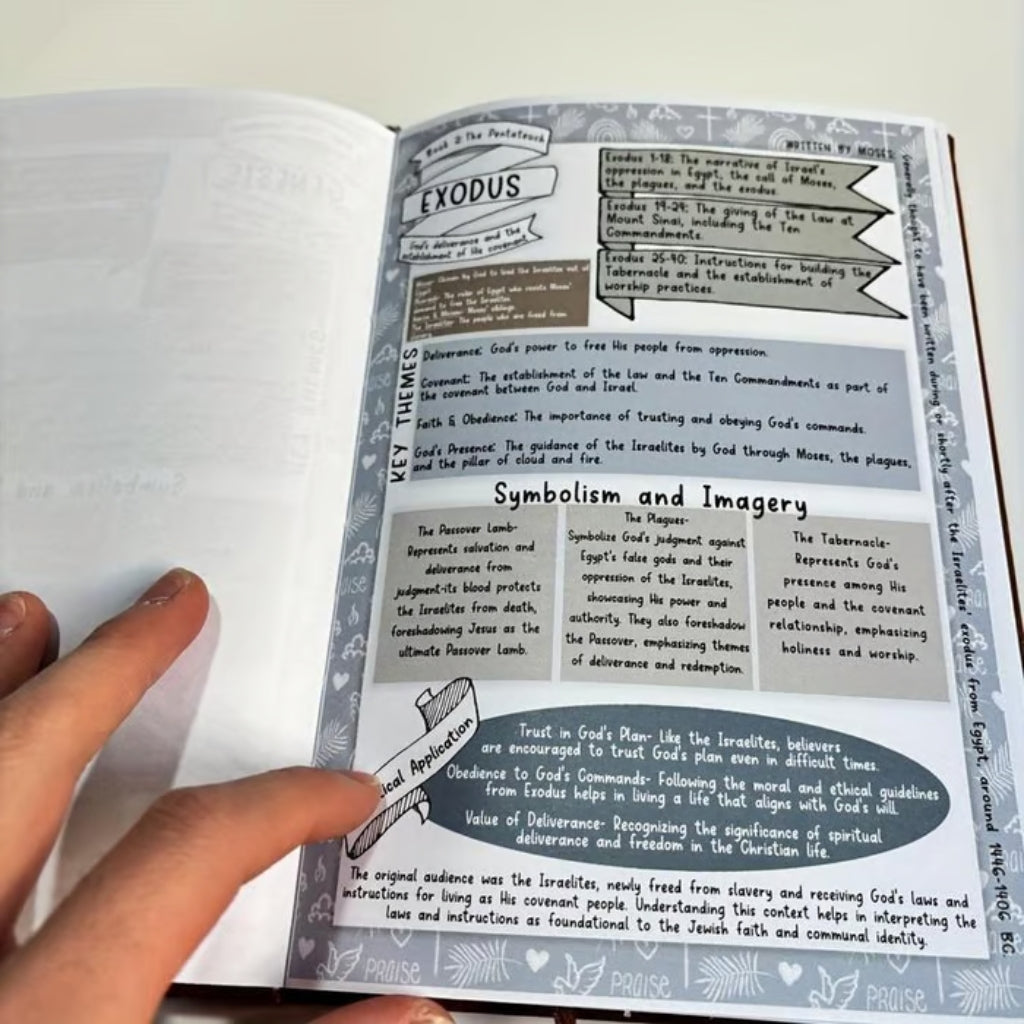 Book 2: The Pentateuch
EXODUS
God's deliverance and the
establishment of His covenant
WRITTEN BY MOSES
Exodus 1-18: The narrative of Israel's
oppression in Egypt, the call of Moses,
the plagues, and the exodus.
Exodus 19-24: The giving of the Law at
Mount Sinai, including the Ten
Commandments.
Exodus 25-40: Instructions for building the
Tabernacle and the establishment of
worship practices.
Chosen by God to lead the Israelites out of
The ruler of Egypt who resists Moses'
demand to free the Israelites
Moses' siblings
The people who are freed from
KEY THEMES
Deliverance: God's power to free His people from oppression.
Covenant: The establishment of the Law and the Ten Commandments as part of
the covenant between God and Israel.
Faith & Obedience: The importance of trusting and obeying God's commands.
God's Presence: The guidance of the Israelites by God through Moses, the plagues,
and the pillar of cloud and fire.
Symbolism and Imagery
The Passover Lamb-
Represents salvation and
deliverance from
judgment-its blood protects
the Israelites from death,
foreshadowing Jesus as the
ultimate Passover Lamb.
The Plagues-
Symbolize God's judgment against
Egypt's false gods and their
oppression of the Israelites,
showcasing His power and
authority. They also foreshadow
the Passover, emphasizing themes
of deliverance and redemption.
The Tabernacle-
Represents God's
presence among His
people and the covenant
relationship, emphasizing
holiness and worship.
ical Application
Trust in God's Plan- Like the Israelites, believers
are encouraged to trust God's plan even in difficult times.
Obedience to God's Commands- Following the moral and ethical guidelines
from Exodus helps in living a life that aligns with God's will.
Value of Deliverance- Recognizing the significance of spiritual
deliverance and freedom in the Christian life.
The original audience was the Israelites, newly freed from slavery and receiving God's laws and
instructions for living as His covenant people. Understanding this context helps in interpreting the
laws and instructions as foundational to the Jewish faith and communal identity.
Generally thought to have been written during or shortly after the Israelites' exodus from Egypt, around 1446-1406 BC.
PRAISE
PRAISE